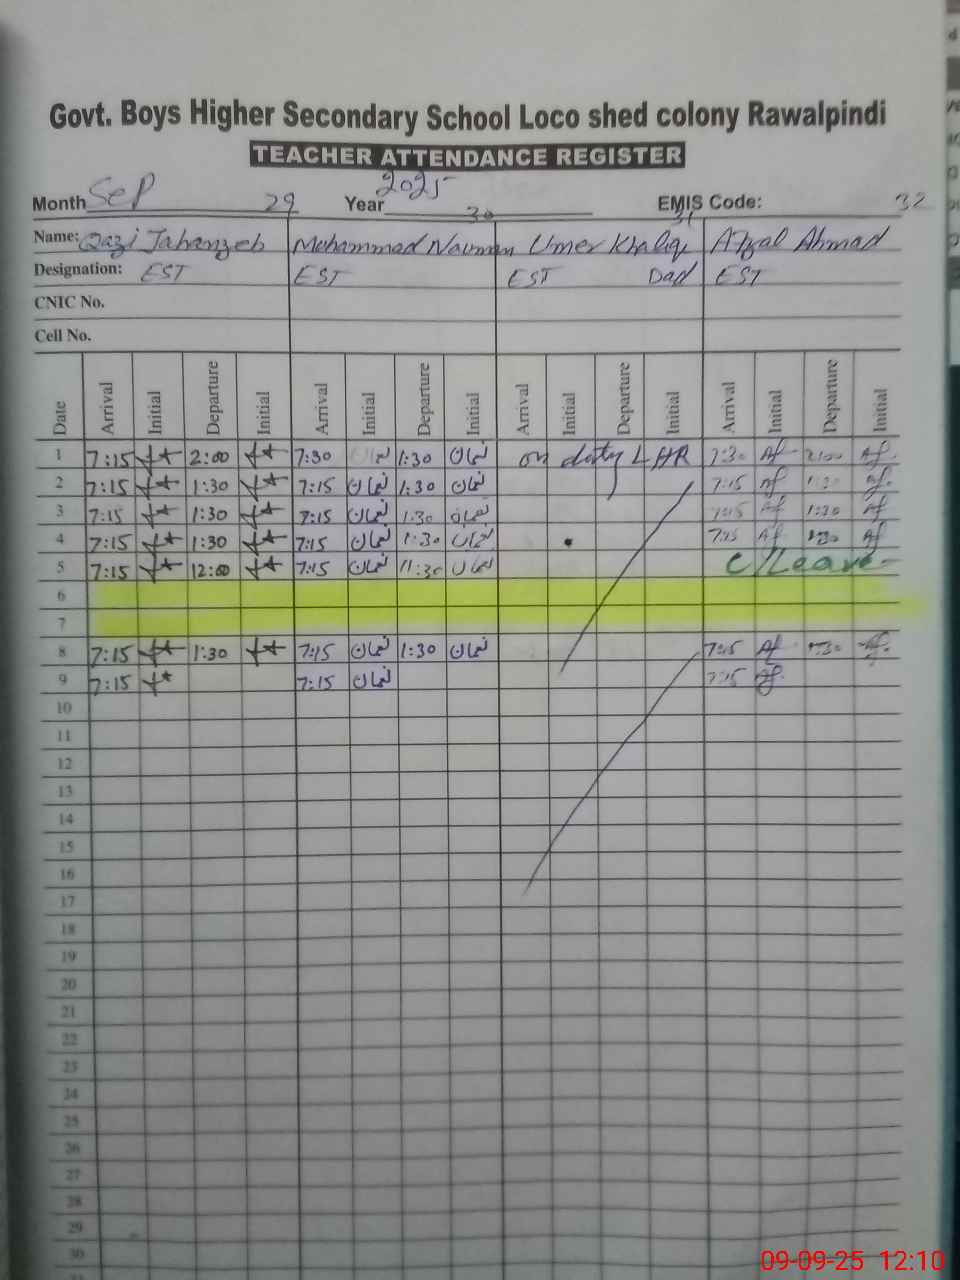 Govt. Boys Higher Secondary School Loco shed colony Rawalpindi
TEACHER ATTENDANCE REGISTER
Month Sep 29 Year 2025 30 EMIS Code: 31 32
Name: Qazi Jahanzeb Muhammad Nauman Umer Khaliq Afzal Ahmad
Designation: EST EST EST Dad EST
CNIC No.
Cell No.
Date Arrival Initial Departure Initial Arrival Initial Departure Initial Arrival Initial Departure Initial Arrival Initial Departure Initial
1 7:15 2:00 7:30 نعمان 1:30 نعمان on duty LHR 7:30 Af 2:00 Af
2 7:15 1:30 7:15 نعمان 1:30 نعمان 7:15 Af 1:30 Af
3 7:15 1:30 7:15 نعمان 1:30 نعمان 7:15 Af 1:30 Af
4 7:15 1:30 7:15 نعمان 1:30 نعمان 7:15 Af 1:30 Af
5 7:15 12:00 7:15 نعمان 11:30 نعمان C/Leave
6
7
8 7:15 1:30 7:15 نعمان 1:30 نعمان 7:15 Af 1:30 Af
9 7:15 7:15 نعمان 7:15 Af
10
11
12
13
14
15
16
17
18
19
20
21
22
23
24
25
26
27
28
29
30
09-09-25 12:10